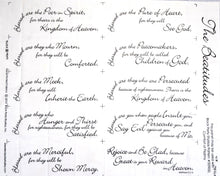 Blessed are the Poor in Spirit,
for theirs is the
Kingdom of Heaven
Blessed are they who Mourn,
for they will be
Comforted.
Blessed are the Meek,
for they will
Inherit the Earth.
Blessed are they who
Hunger and Thirst
for righteousness, for they will be
Satisfied.
Blessed are the Merciful,
for they will be
Shown Mercy.
Blessed are the Pure of Heart,
for they will
See God.
Blessed are the Peacemakers,
for they will be called
Children of God.
Blessed are they who are Persecuted
because of righteousness,
for theirs is the
Kingdom of Heaven.
Blessed are you when people Insult you,
Persecute you, and
Say Evil against you
because of Me.
Rejoice and Be Glad, because
Great is your Reward
in Heaven.
The Beatitudes